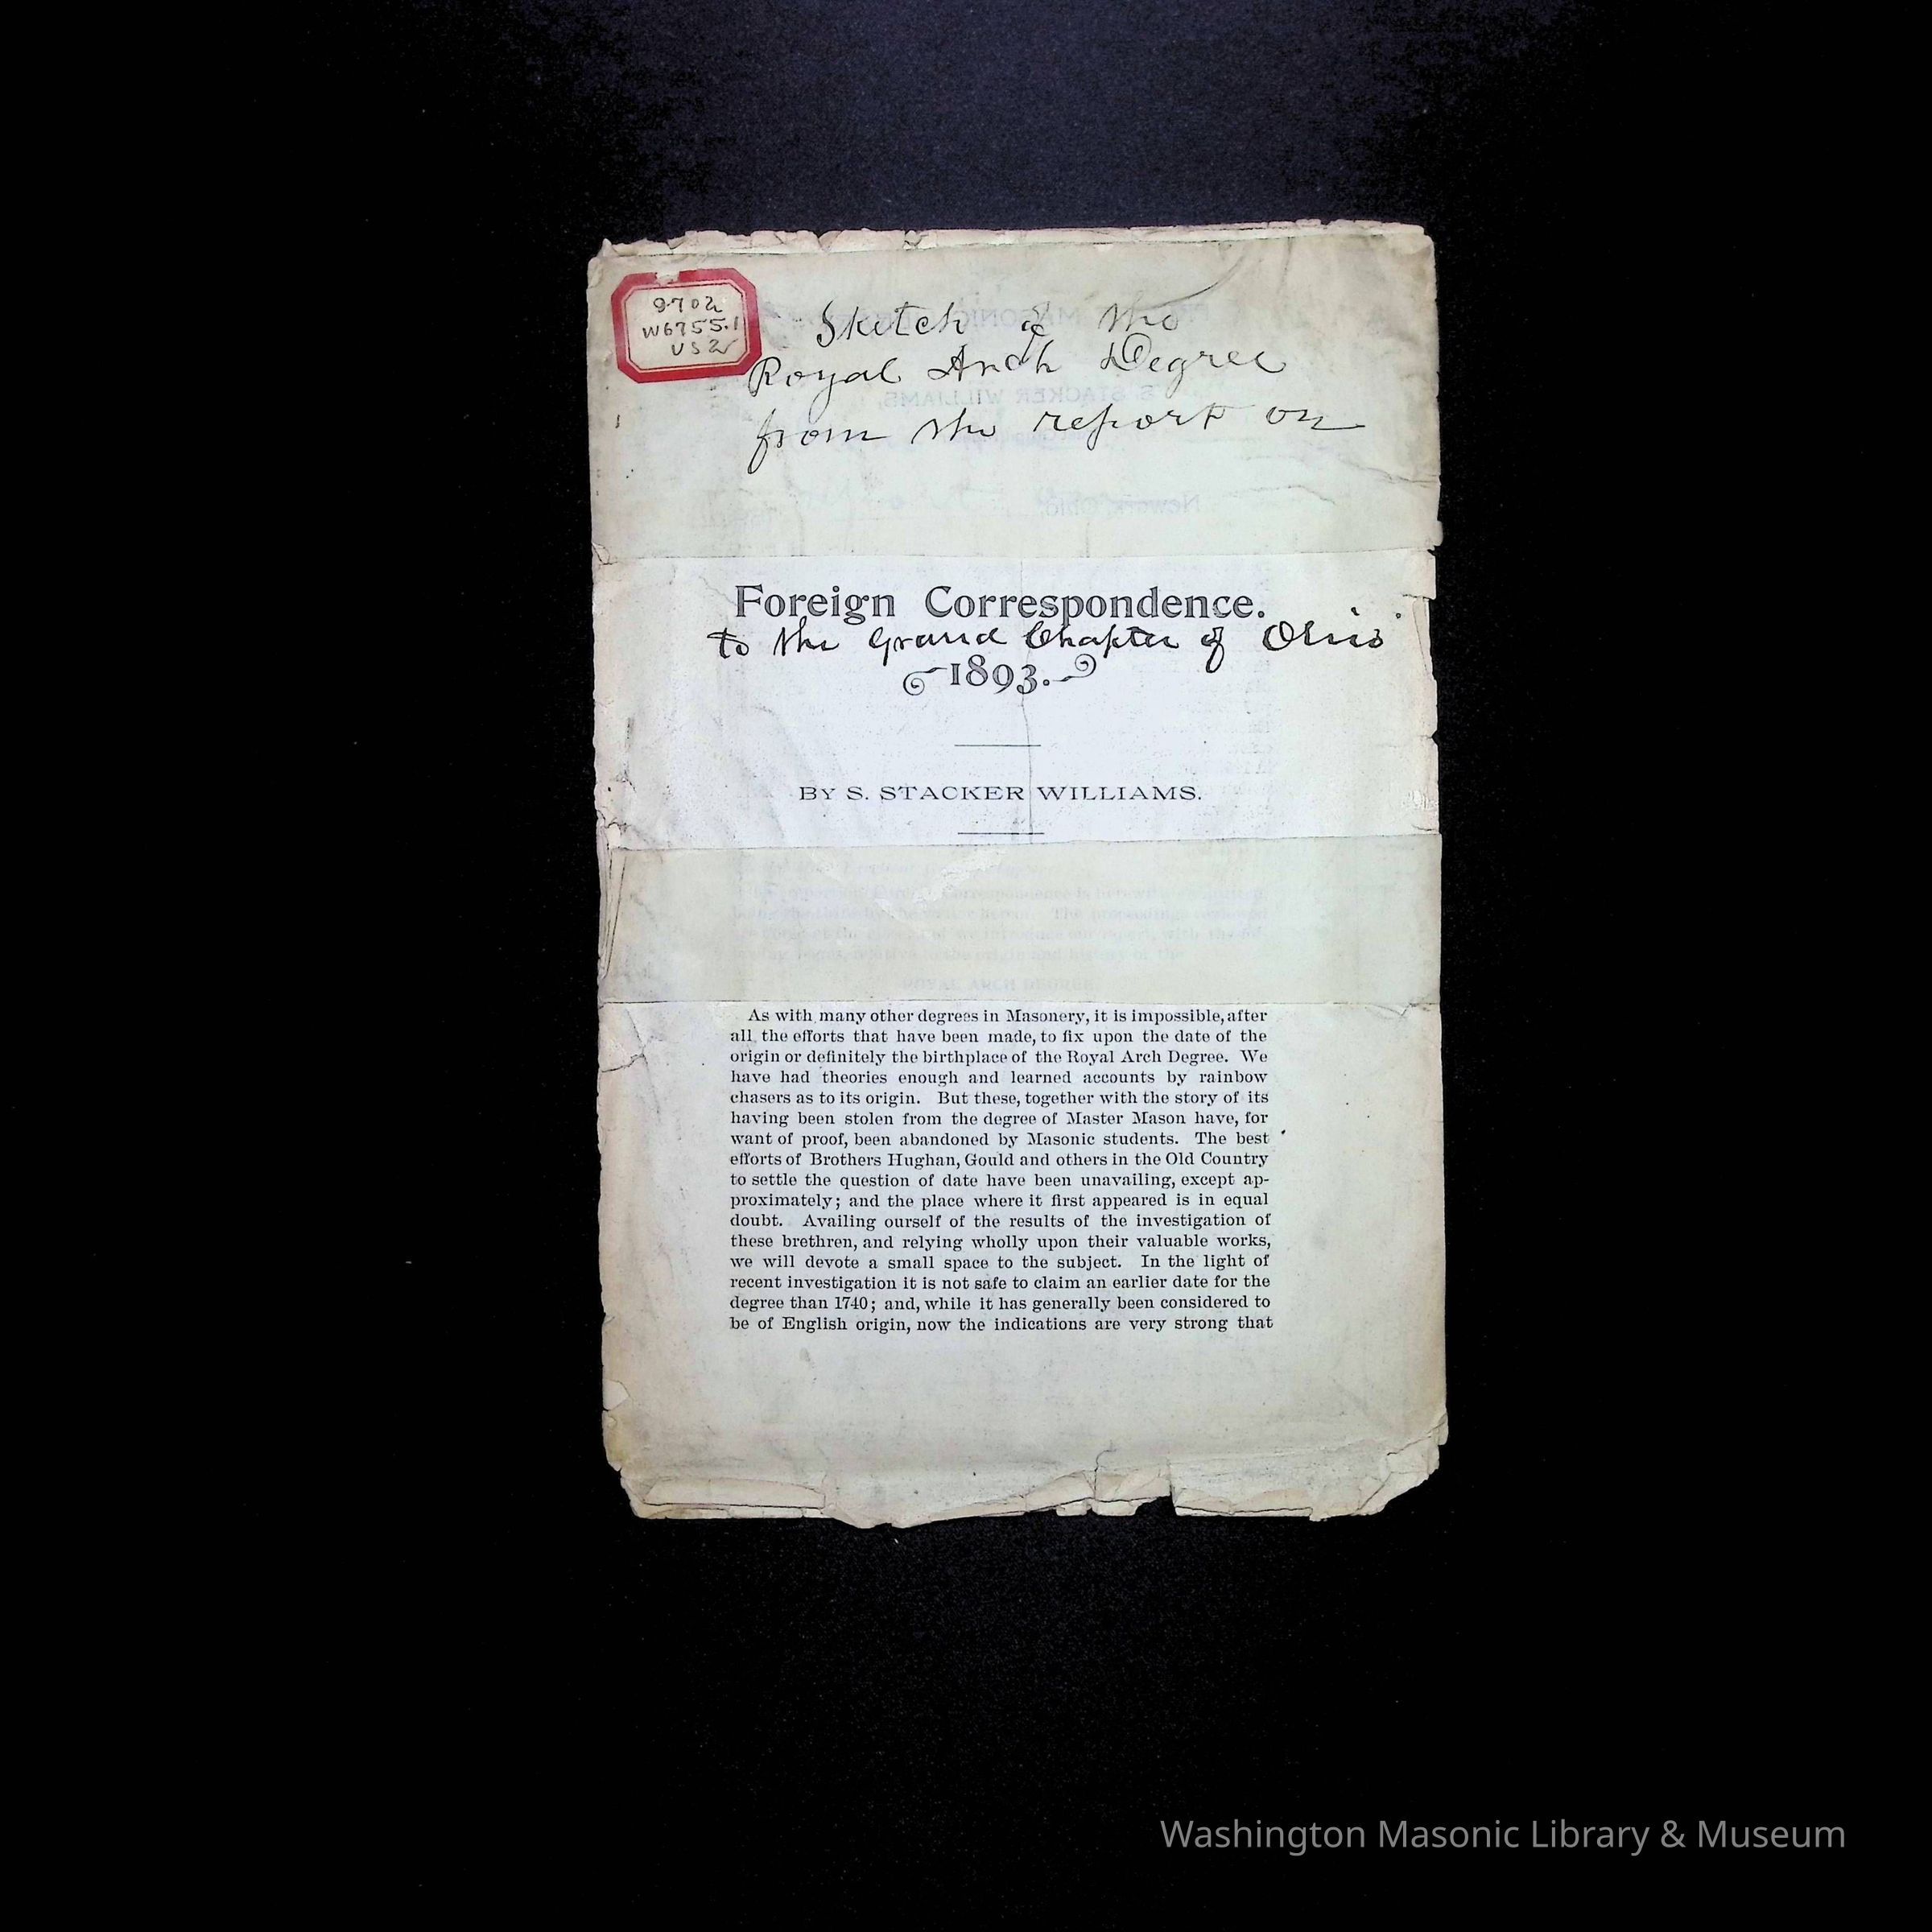 9702
W6755.1
US2
Sketch of the
Royal Arch Degree
from the report on
Foreign Correspondence.
to the Grand Chapter of Ohio
1893.
BY S. STACKER WILLIAMS.
ROYAL ARCH DEGREE.
As with many other degrees in Masonery, it is impossible, after
all the efforts that have been made, to fix upon the date of the
origin or definitely the birthplace of the Royal Arch Degree. We
have had theories enough and learned accounts by rainbow
chasers as to its origin. But these, together with the story of its
having been stolen from the degree of Master Mason have, for
want of proof, been abandoned by Masonic students. The best
efforts of Brothers Hughan, Gould and others in the Old Country
to settle the question of date have been unavailing, except ap-
proximately; and the place where it first appeared is in equal
doubt. Availing ourself of the results of the investigation of
these brethren, and relying wholly upon their valuable works,
we will devote a small space to the subject. In the light of
recent investigation it is not safe to claim an earlier date for the
degree than 1740; and, while it has generally been considered to
be of English origin, now the indications are very strong that
Washington Masonic Library & Museum